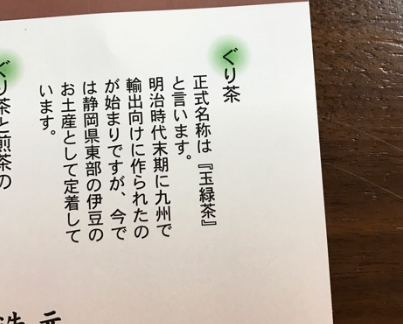 ぐり茶
正式名称は『玉緑茶』
と言います。
明治時代末期に九州で
輸出向けに作られたの
が始まりですが、今で
は静岡県東部の伊豆の
お土産として定着して
います。
ぐり茶と煎茶の